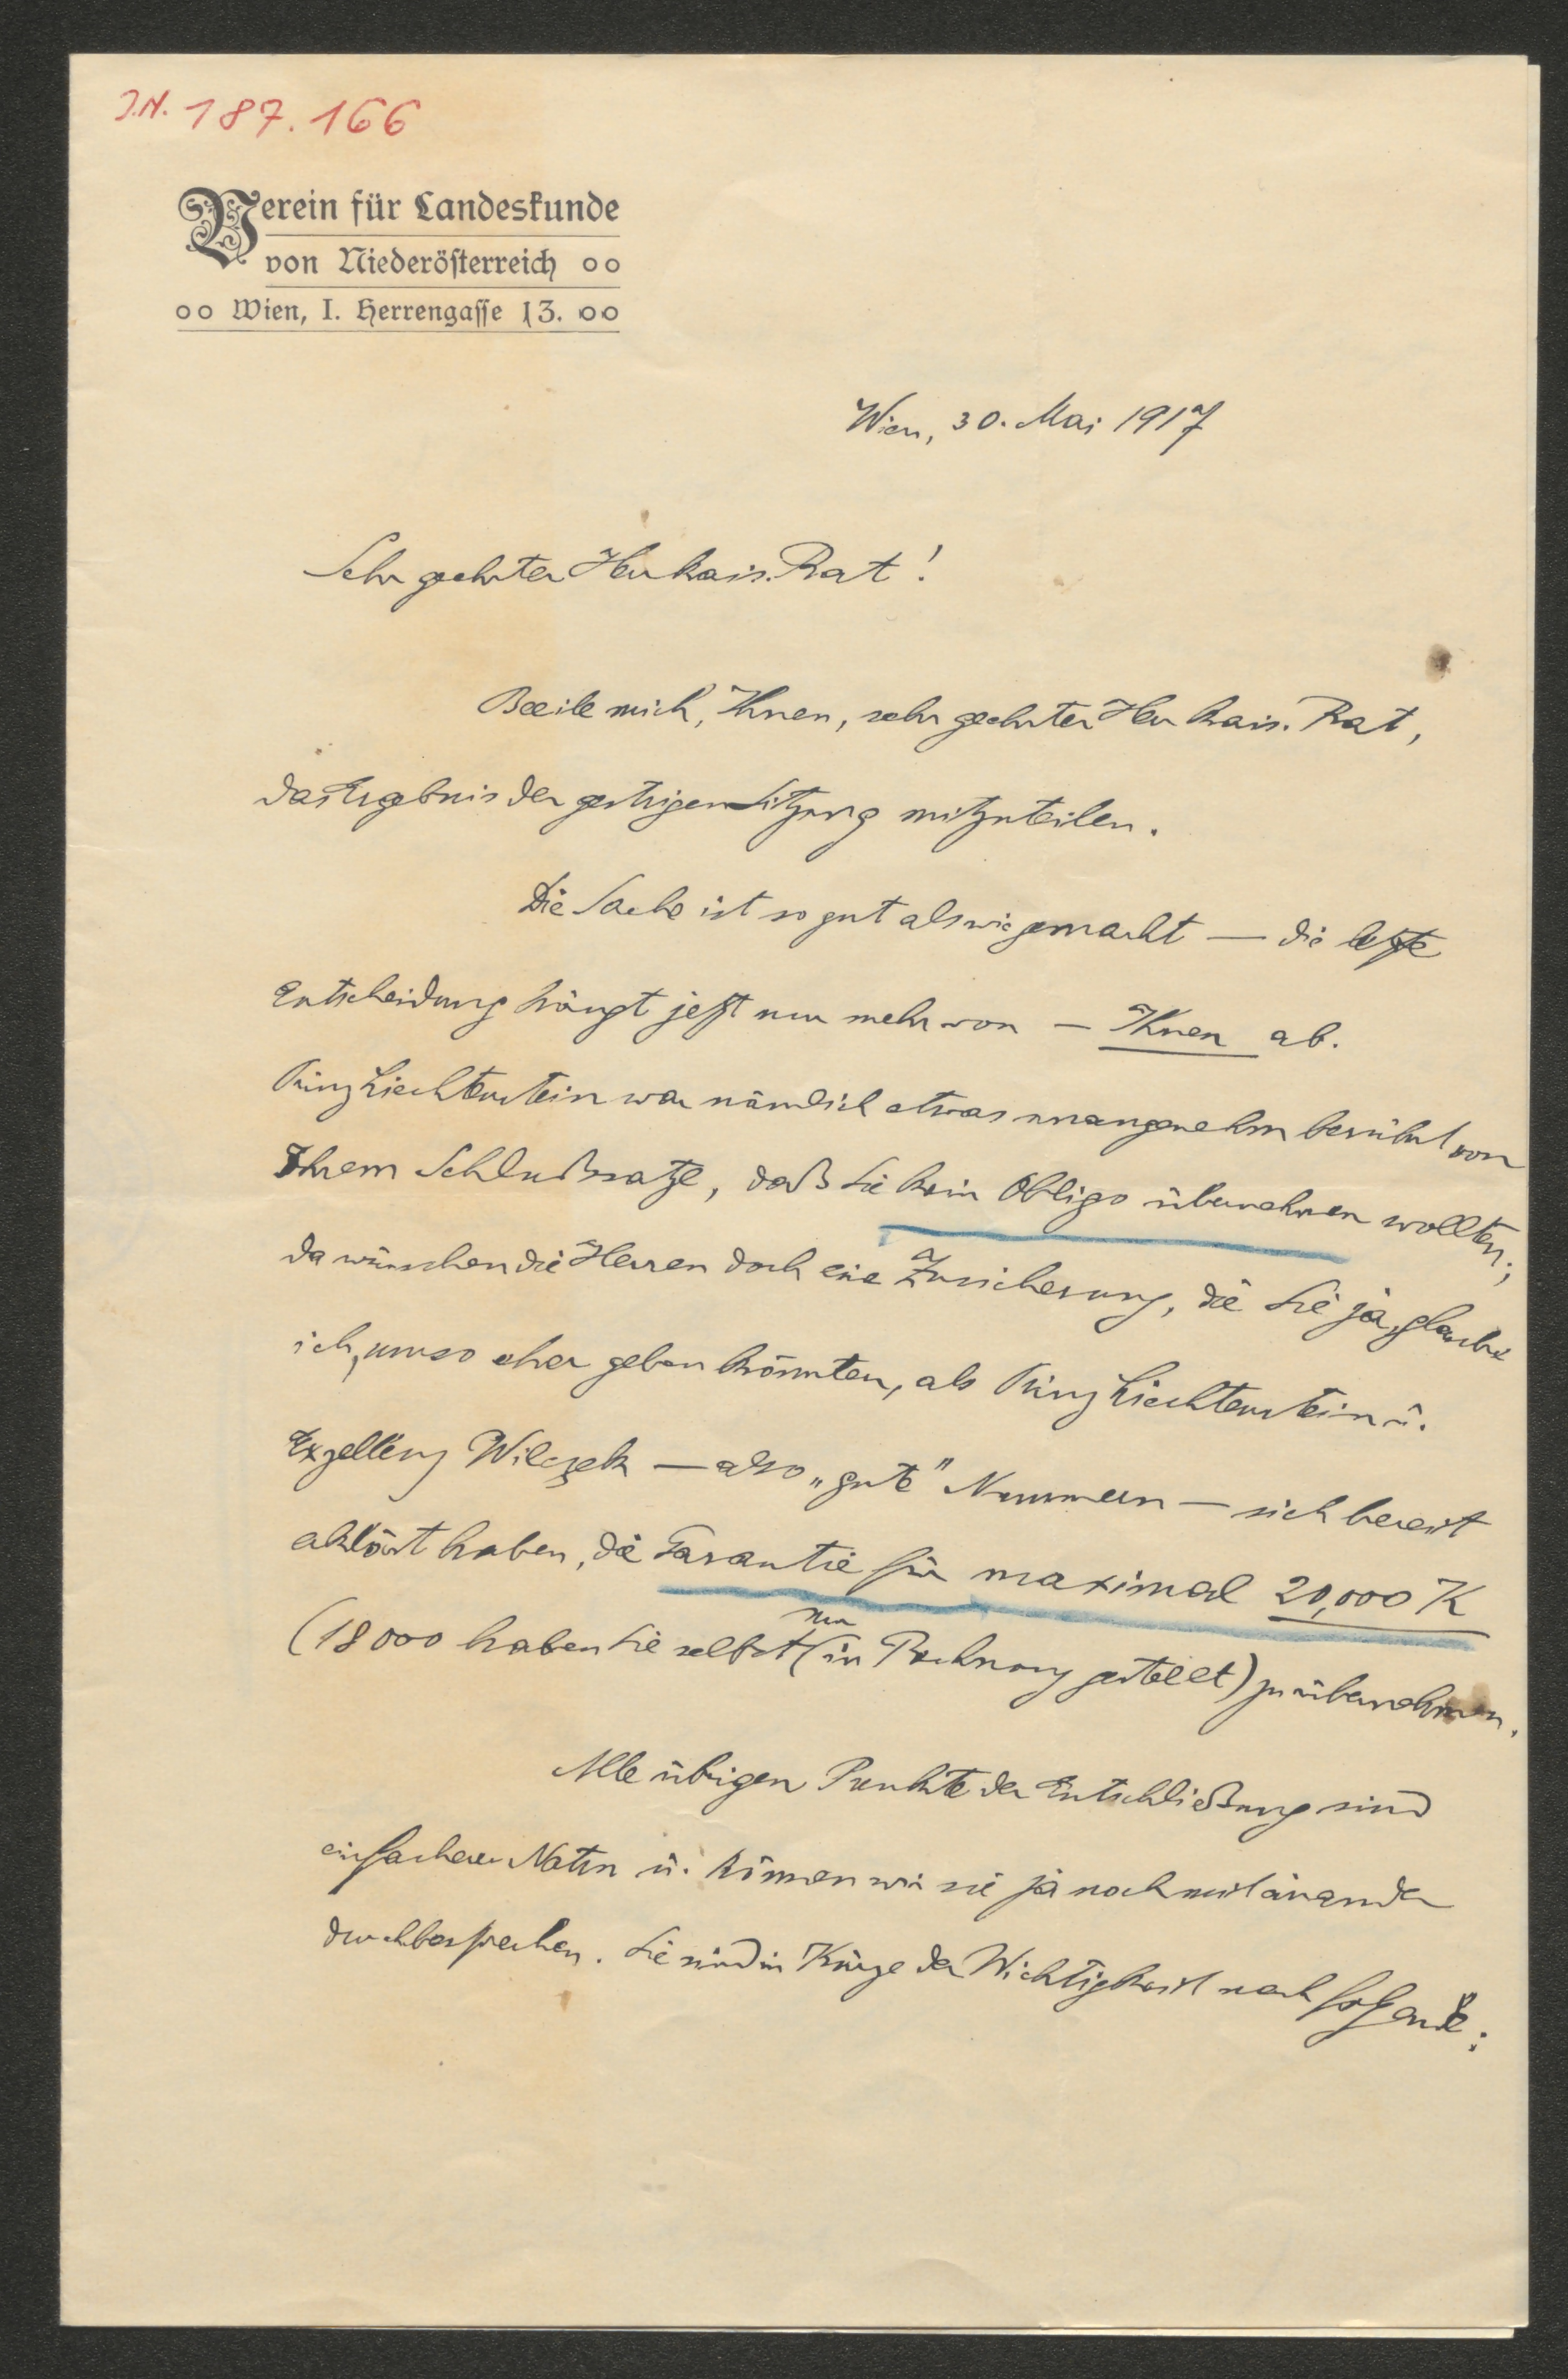 J.N. 187.166
Verein für Landeskunde
von Niederösterreich
Wien, I. Herrengasse 13.
Wien, 30. Mai 1917
Sehr geehrter Herr kais. Rat!
Beeile mich, Ihnen, sehr geehrter Herr kais. Rat,
das Ergebnis der gestrigen Sitzung mitzuteilen.
Die Sache ist so gut als wie gemacht — die letzte
Entscheidung hängt jetzt nur mehr von — Ihnen ab.
Prinz Liechtenstein war nämlich etwas unangenehm berührt von
Ihrem Schlußsatze, daß Sie kein Obligo übernehmen wollten;
da wünschen die Herren doch eine Zusicherung, die Sie ja, glaube
ich, umso eher geben könnten, als Prinz Liechtenstein u.
Exzellenz Wilczek — also „gute" Nummern — sich bereit
erklärt haben, die Garantie für maximal 20,000 K
(18000 haben Sie selbst nur in Rechnung gestellt) zu übernehmen.
Alle übrigen Punkte der Entschließung sind
einfacherer Natur u. können wir sie ja noch miteinander
durchbesprechen. Sie sind in Kürze der Wichtigkeit nach folgende: